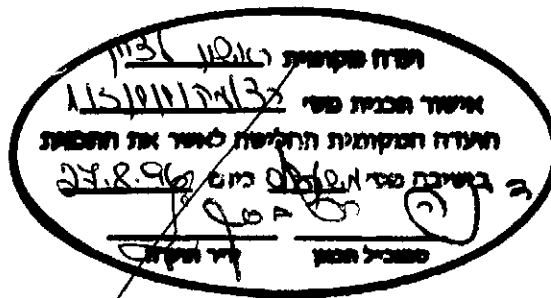 ועדה מקומית ראשון לציון
אישור תכנית מס'
הועדה המקומית החליטה לאשר את התכנית
בישיבה מס' ביום 27.8.96
סמנכ"ל תכנון יו"ר הועדה